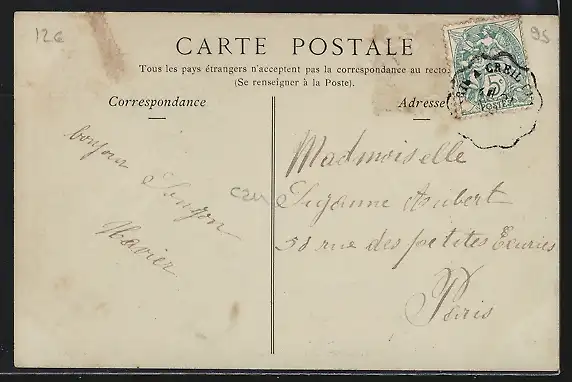 12€
95
CARTE POSTALE
Tous les pays étrangers n'acceptent pas la correspondance au recto
(Se renseigner à la Poste).
Correspondance
Adresse
A CREIL
5c
POSTES
bonjour
Suzon
Xavier
Madmoiselle
Suzanne Aubert
58 rue des petites Ecuries
Paris